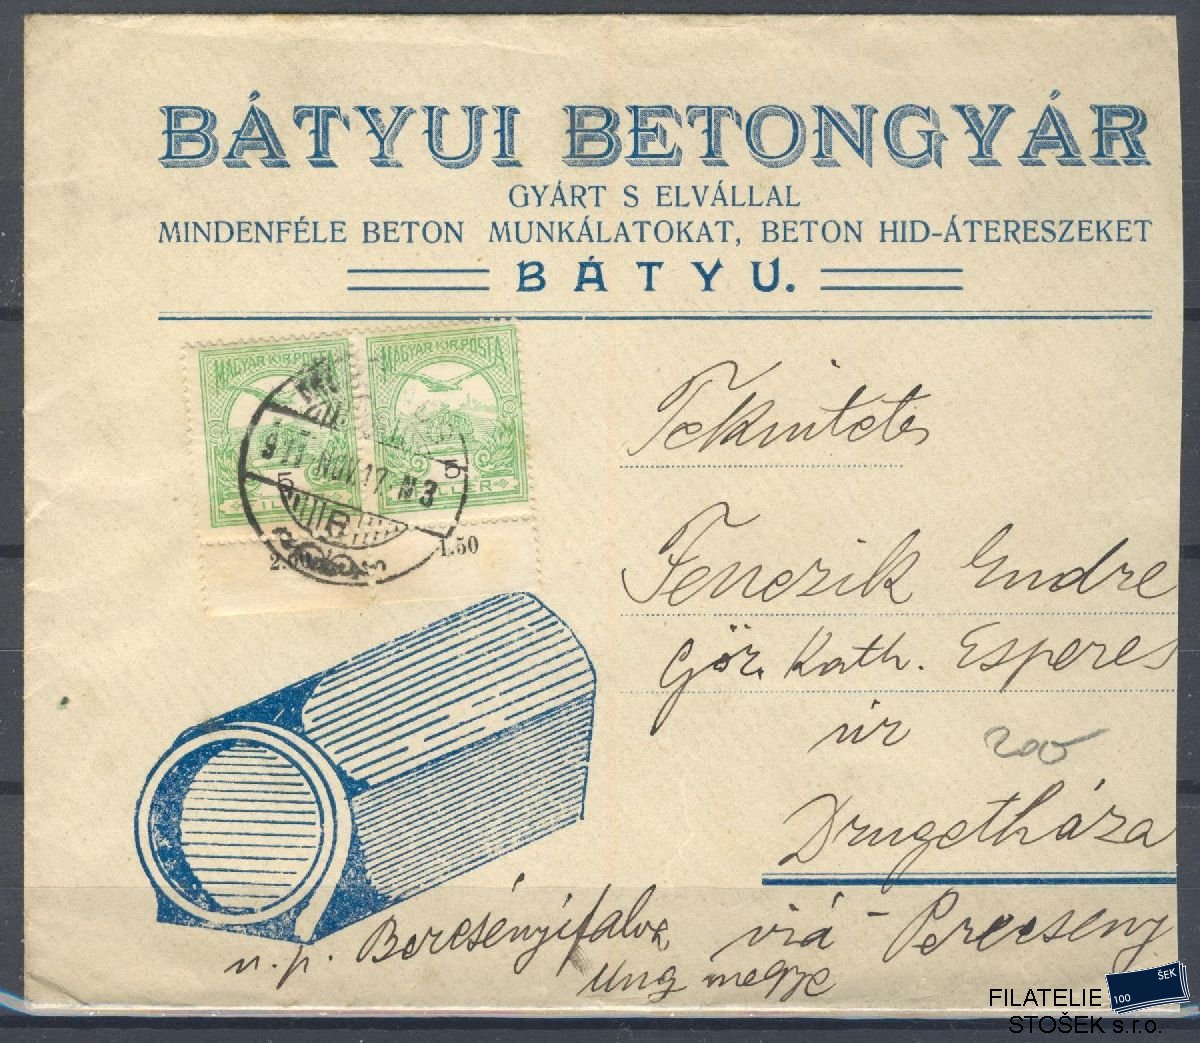 BÁTYUI BETONGYÁR
GYÁRT S ELVÁLLAL
MINDENFÉLE BETON MUNKÁLATOKAT, BETON HID-ÁTERESZEKET
BÁTYU.
MAGYAR KIR. POSTA MAGYAR KIR. POSTA
911 NOV. 17. N3
5 5
FILLÉR FILLÉR
B
1.50
Tekintetes
Fenczik Endre
Gör. Kath. Esperes
úr
200
Drugetháza
u. p. Bercsényifalva viá - Perecseny
Ung megye
FILATELIE
STOŠEK s.r.o.
100
ŠEK